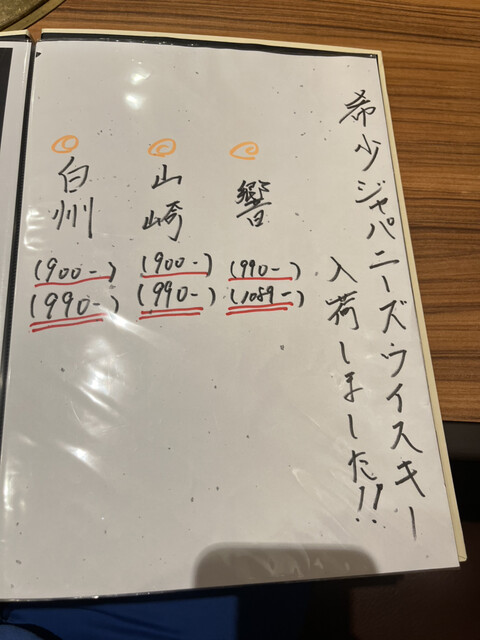 希少ジャパニーズウイスキー
入荷しました!!
響
(990-)
(1089-)
山崎
(900-)
(990-)
白州
(900-)
(990-)